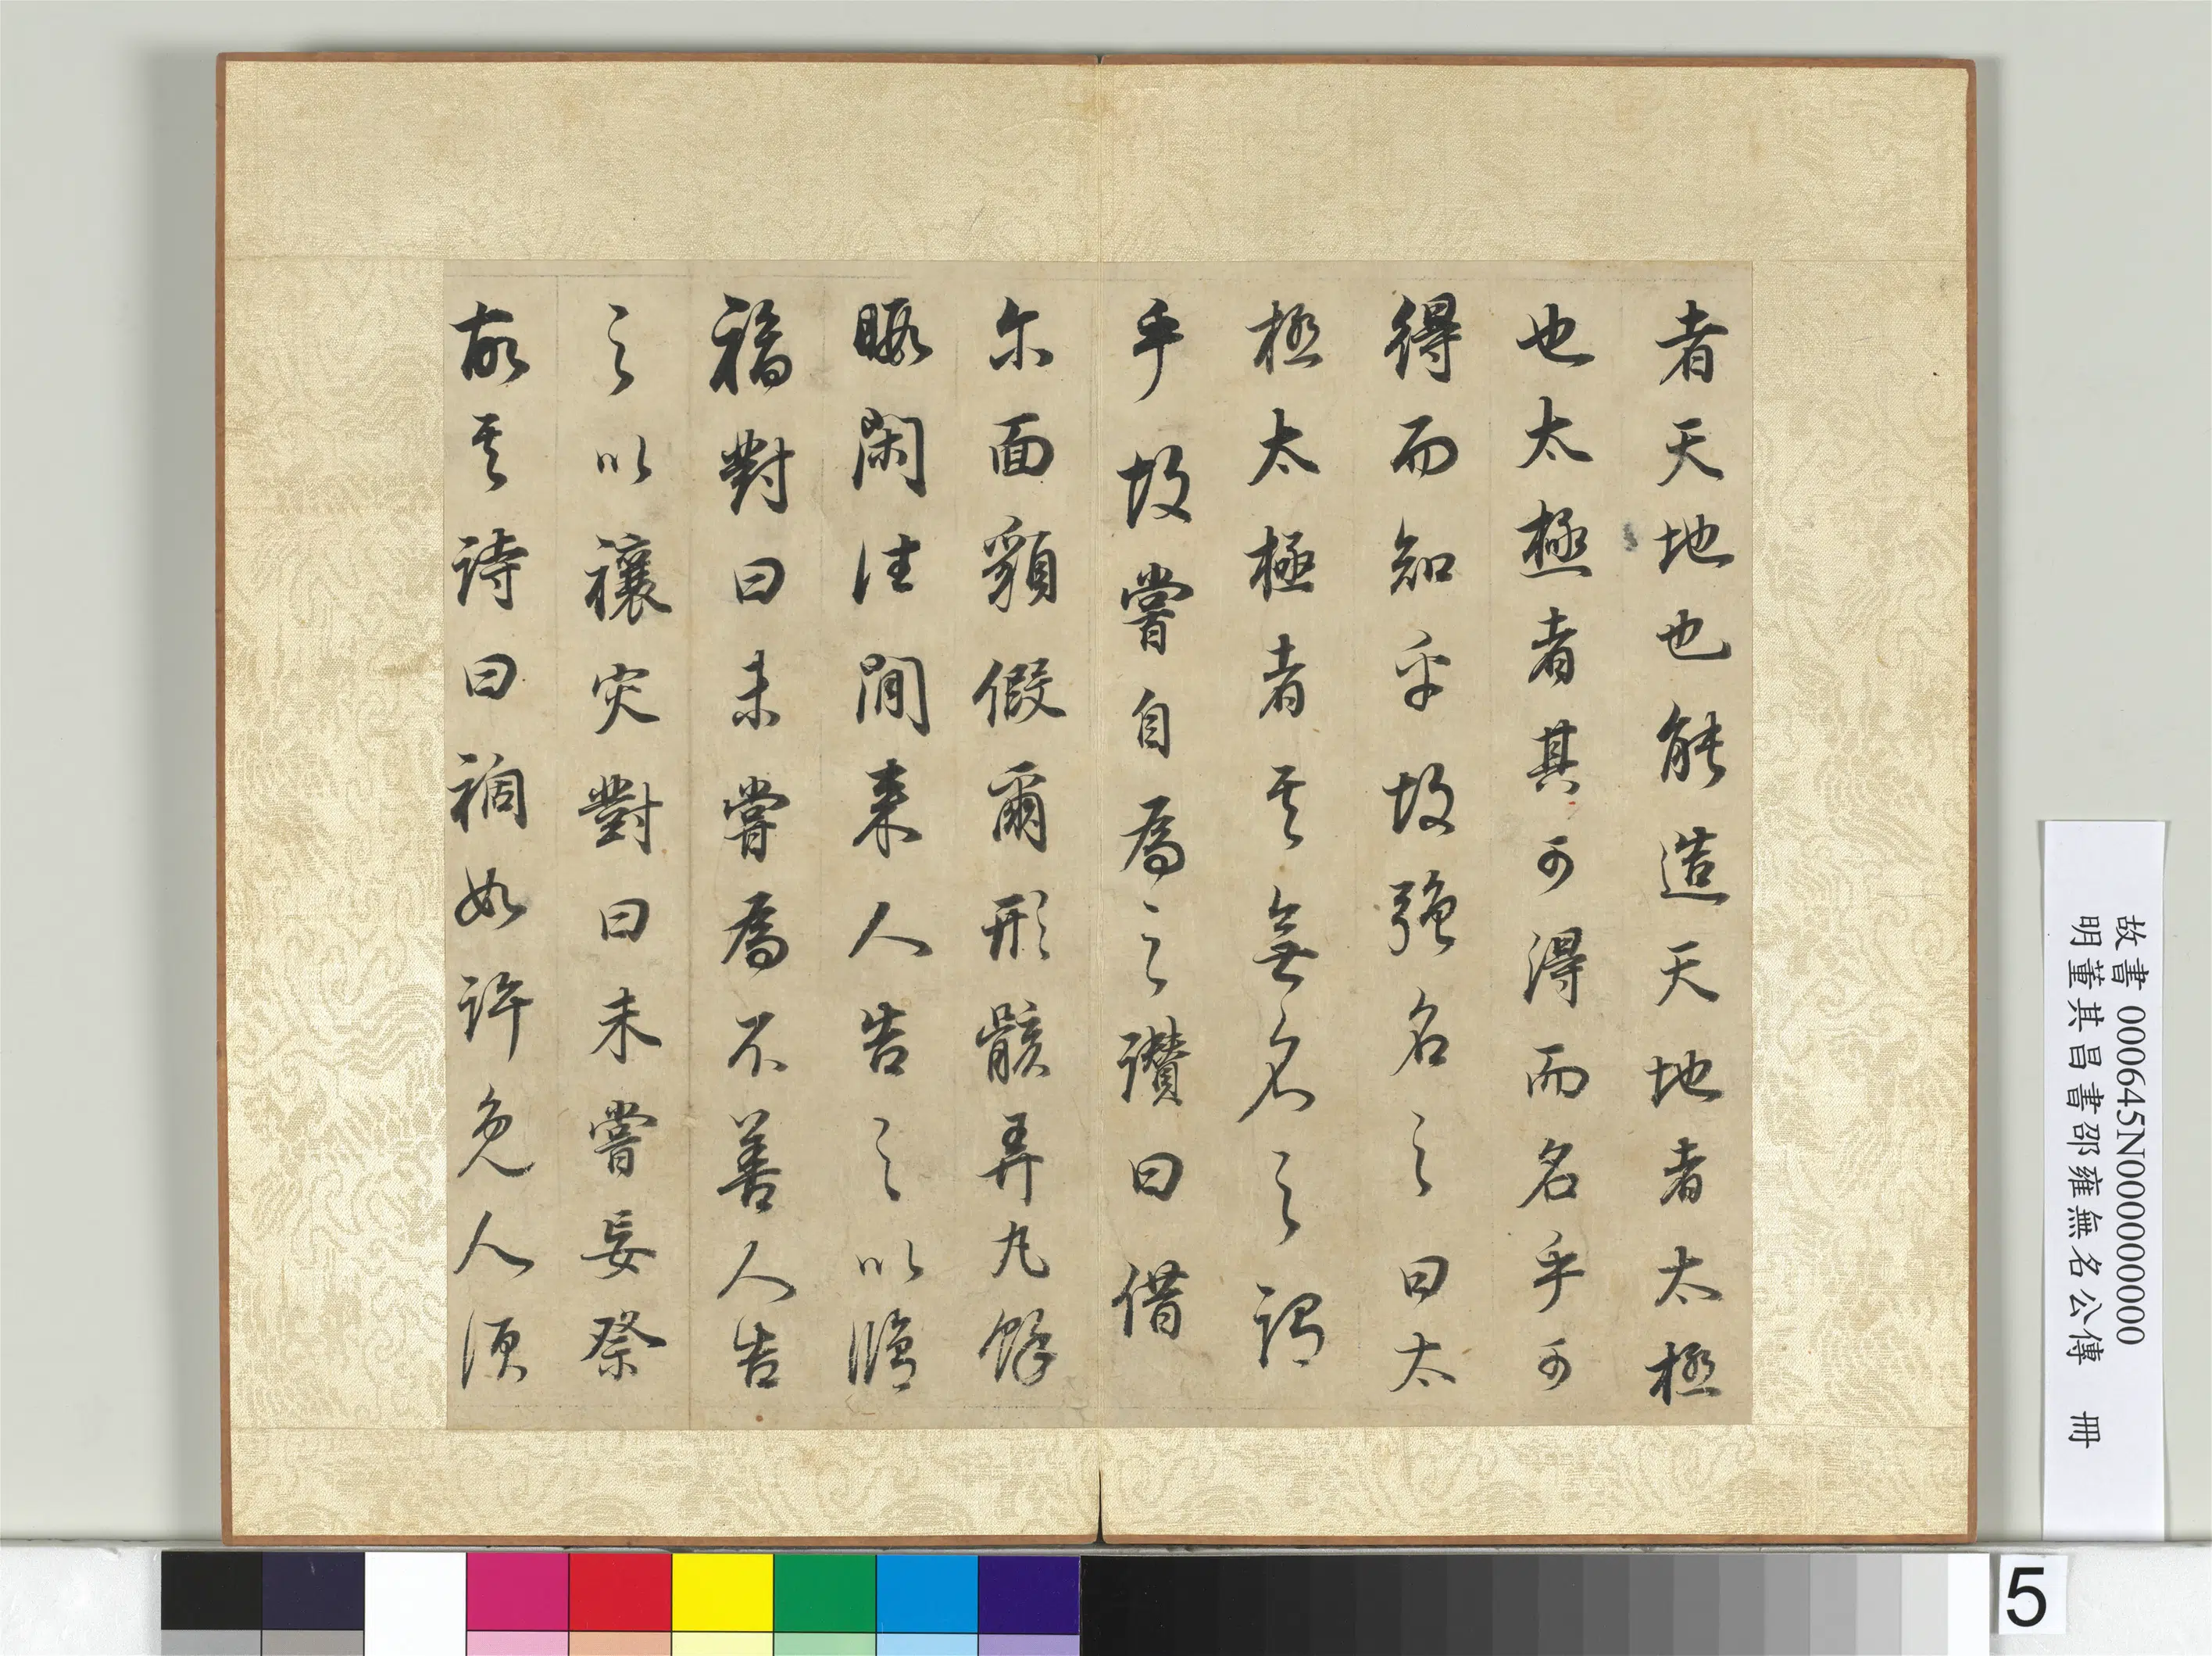 者天地也能造天地者太極
也太極者其可得而名乎可
得而知乎故強名之曰太
極太極者其無名之謂
乎故嘗自為之讚曰借
尔面貌假爾形骸弄丸餘
暇閑往閒來人告之以脩
福對曰未嘗為不善人告
之以禳災對曰未嘗妄祭
故其詩曰禍如許免人須
故書 000645N000000000
明董其昌書邵雍無名公傳 冊
5